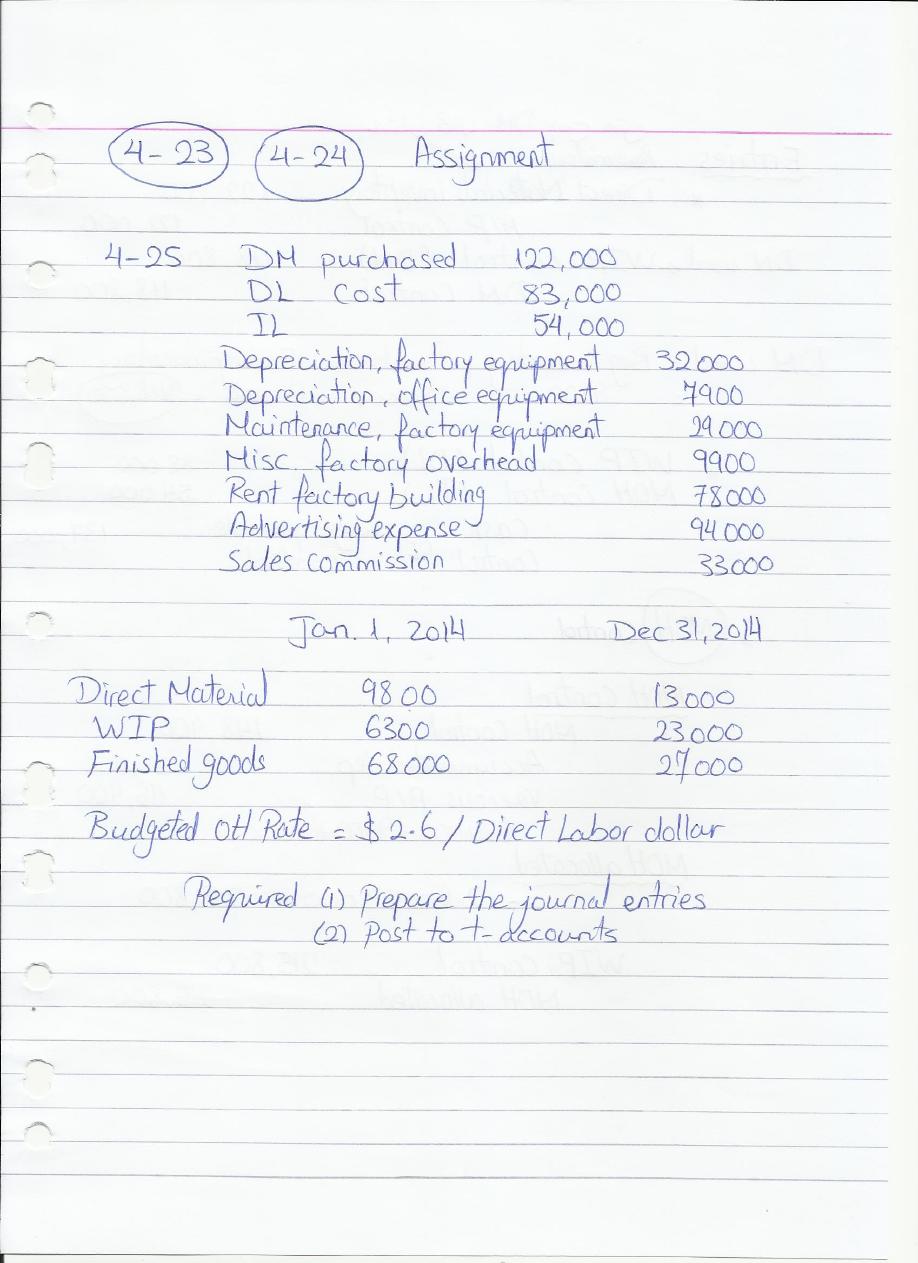 4-23 4-24 Assignment
4-25 DM purchased 122,000
DL cost 83,000
IL 54,000
Depreciation, factory equipment 32000
Depreciation, office equipment 7900
Maintenance, factory equipment 29000
Misc. factory overhead 9900
Rent factory building 78000
Advertising expense 94000
Sales commission 33000
Jan. 1, 2014 Dec 31, 2014
Direct Material 9800 13000
WIP 6300 23000
Finished goods 68000 27000
Budgeted OH Rate = $2.6 / Direct Labor dollar
Required (1) Prepare the journal entries
(2) Post to t-accounts